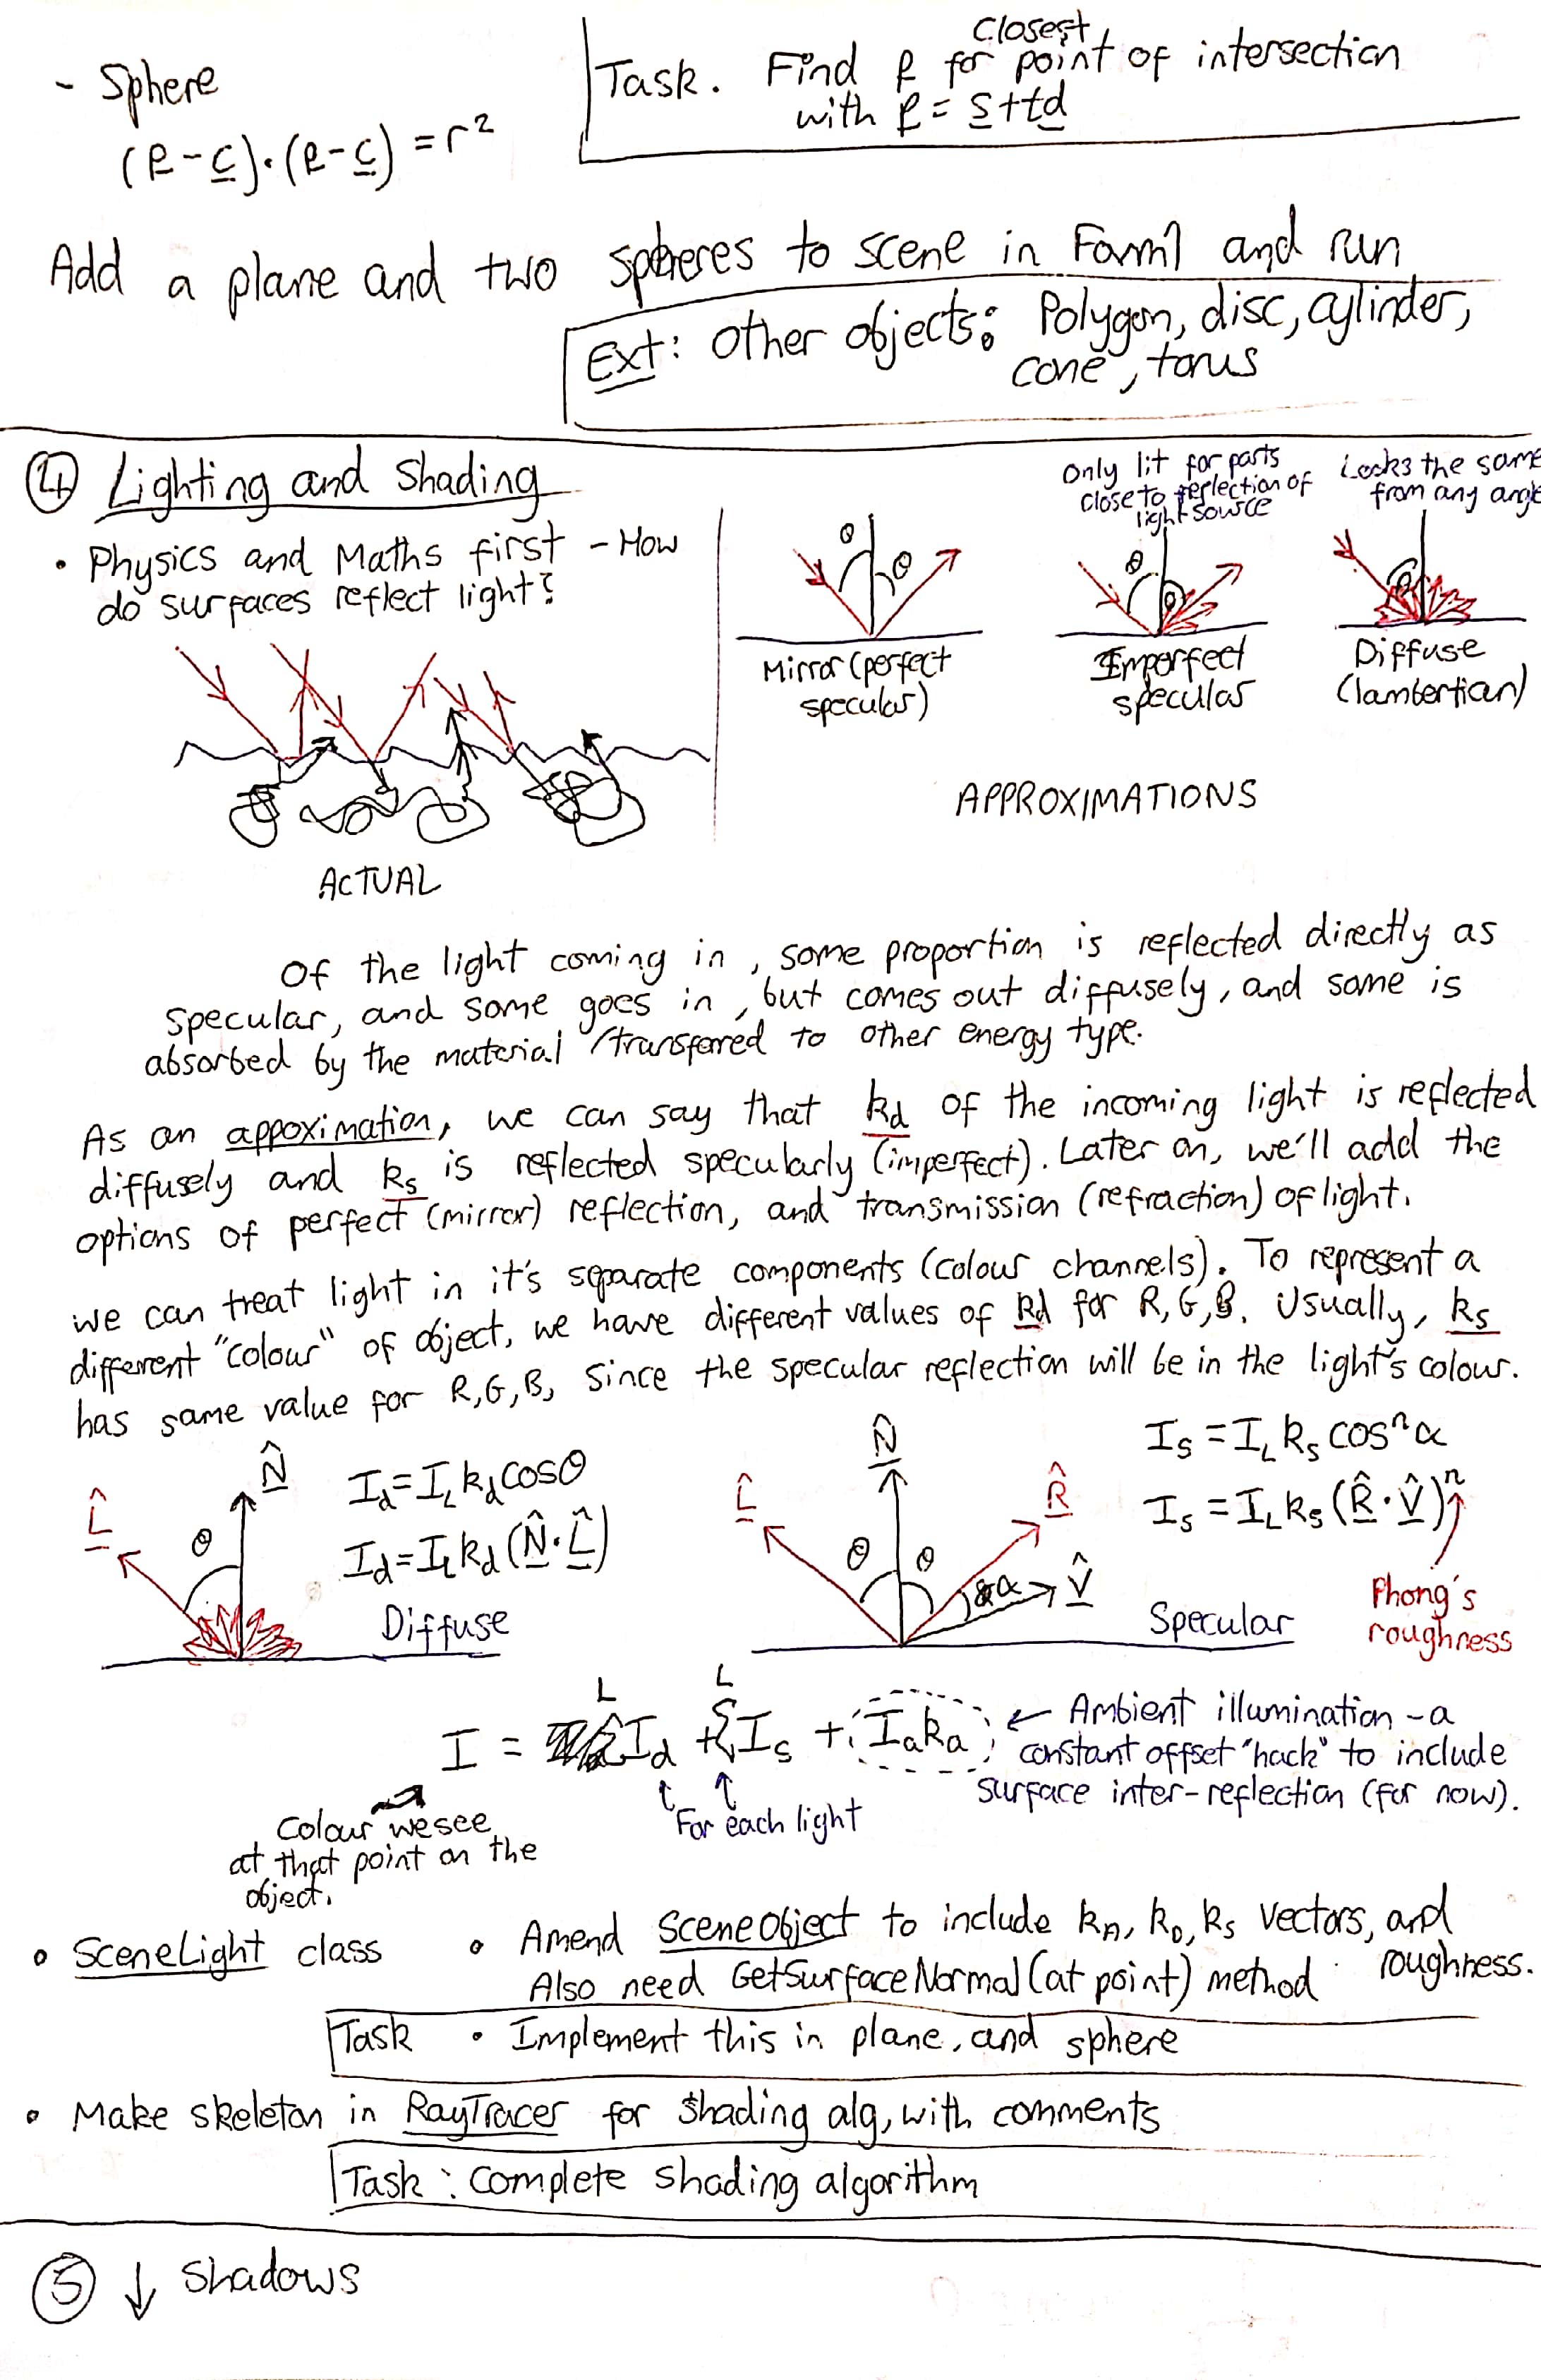 - Sphere
(p-c)·(p-c) = r²
Task. Find p for closest point of intersection
with p = s+td
Add a plane and two spheres to scene in Form1 and run
Ext: Other objects: Polygon, disc, cylinder,
cone, torus
④ Lighting and Shading
• Physics and Maths first - How
do surfaces reflect light?
ACTUAL
Only lit for parts
close to reflection of
light source
Looks the same
from any angle
θ θ
θ θ
θ
Mirror (perfect
specular)
Imperfect
specular
Diffuse
(lambertian)
APPROXIMATIONS
Of the light coming in, some proportion is reflected directly as
specular, and some goes in, but comes out diffusely, and some is
absorbed by the material /transferred to other energy type.
As an appoximation, we can say that kd of the incoming light is reflected
diffusely and ks is reflected specularly (imperfect). Later on, we'll add the
options of perfect (mirror) reflection, and transmission (refraction) of light.
we can treat light in it's separate components (colour channels). To represent a
different "colour" of object, we have different values of kd for R,G,B. Usually, ks
has same value for R,G,B, since the specular reflection will be in the light's colour.
L̂ θ N̂
Id=ILkdcosθ
Id=ILkd(N̂·L̂)
Diffuse
L̂ θ N̂ θ R̂ α V̂
Is=ILkscosⁿα
Is=ILks(R̂·V̂)ⁿ
Specular
Phong's
roughness
L L
I = ΣId + ΣIs + Iaka
← Ambient illumination - a
constant offset "hack" to include
surface inter-reflection (for now).
For each light
Colour we see
at that point on the
object.
• SceneLight class
• Amend SceneObject to include kA, kD, ks vectors, and
roughness.
Also need GetSurfaceNormal(at point) method
Task • Implement this in plane, and sphere
• Make skeleton in RayTracer for shading alg, with comments
Task: Complete shading algorithm
⑤ ↓ Shadows